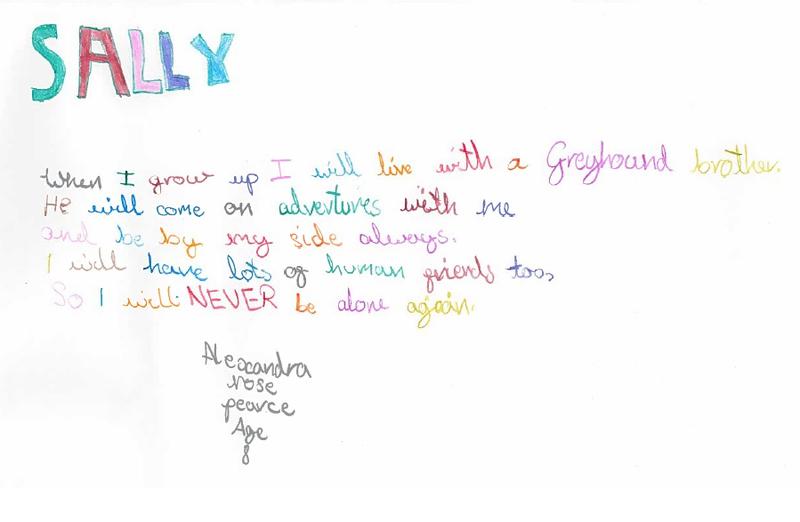 SALLY
When I grow up I will live with a Greyhound brother.
He will come on adventures with me
and be by my side always.
I will have lots of human friends too,
So I will NEVER be alone again.
Alexandra
rose
pearce
Age
8